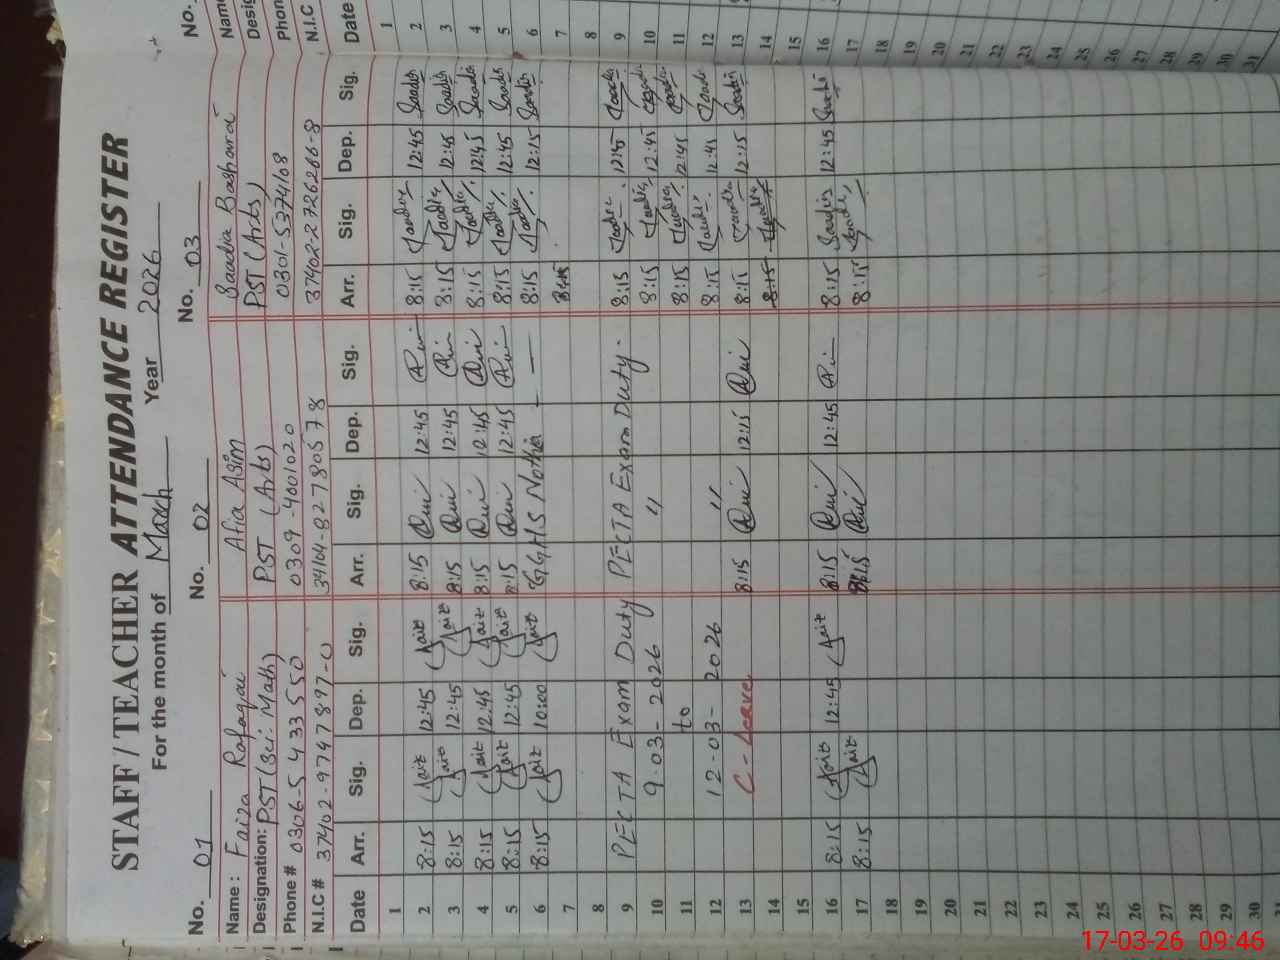 STAFF / TEACHER ATTENDANCE REGISTER
For the month of March Year 2026
No. 01 No. 02 No. 03 No.
Name: Faiza Rafaqat Afia Azim Saadia Basharat Name
Designation: PST (Sci. Math) PST (Arts) PST (Arts) Desig
Phone # 0306-5433550 0309-4001020 0301-5374108 Phon
N.I.C # 37402-9747897-0 34104-8278057-8 37402-2726266-8 N.I.C
Date Arr. Sig. Dep. Sig. Arr. Sig. Dep. Sig. Arr. Sig. Dep. Sig. Date
1 1
2 8:15 12:45 8:15 12:45 8:15 12:45 2
3 8:15 12:45 8:15 12:45 8:15 12:45 3
4 8:15 12:45 8:15 12:45 8:15 12:45 4
5 8:15 12:45 8:15 12:45 8:15 12:45 5
6 8:15 10:00 GGHS 8:15 12:15 6
7 8:15 7
8 8
9 PECTA Exam Duty PECTA Exam Duty. 8:15 12:45 9
10 9-03-2026 " 8:15 12:45 10
11 to 8:15 12:45 11
12 12-03-2026 " 8:15 12:45 12
13 C-Leave 8:15 12:15 8:15 12:15 13
14 8:15 14
15 15
16 8:15 12:45 8:15 12:45 8:15 12:45 16
17 8:15 8:15 8:15 17
18 18
19 19
20 20
21 21
22 22
23 23
24 24
25 25
26 26
27 27
28 28
29 29
30 30
31 31
17-03-26 09:46